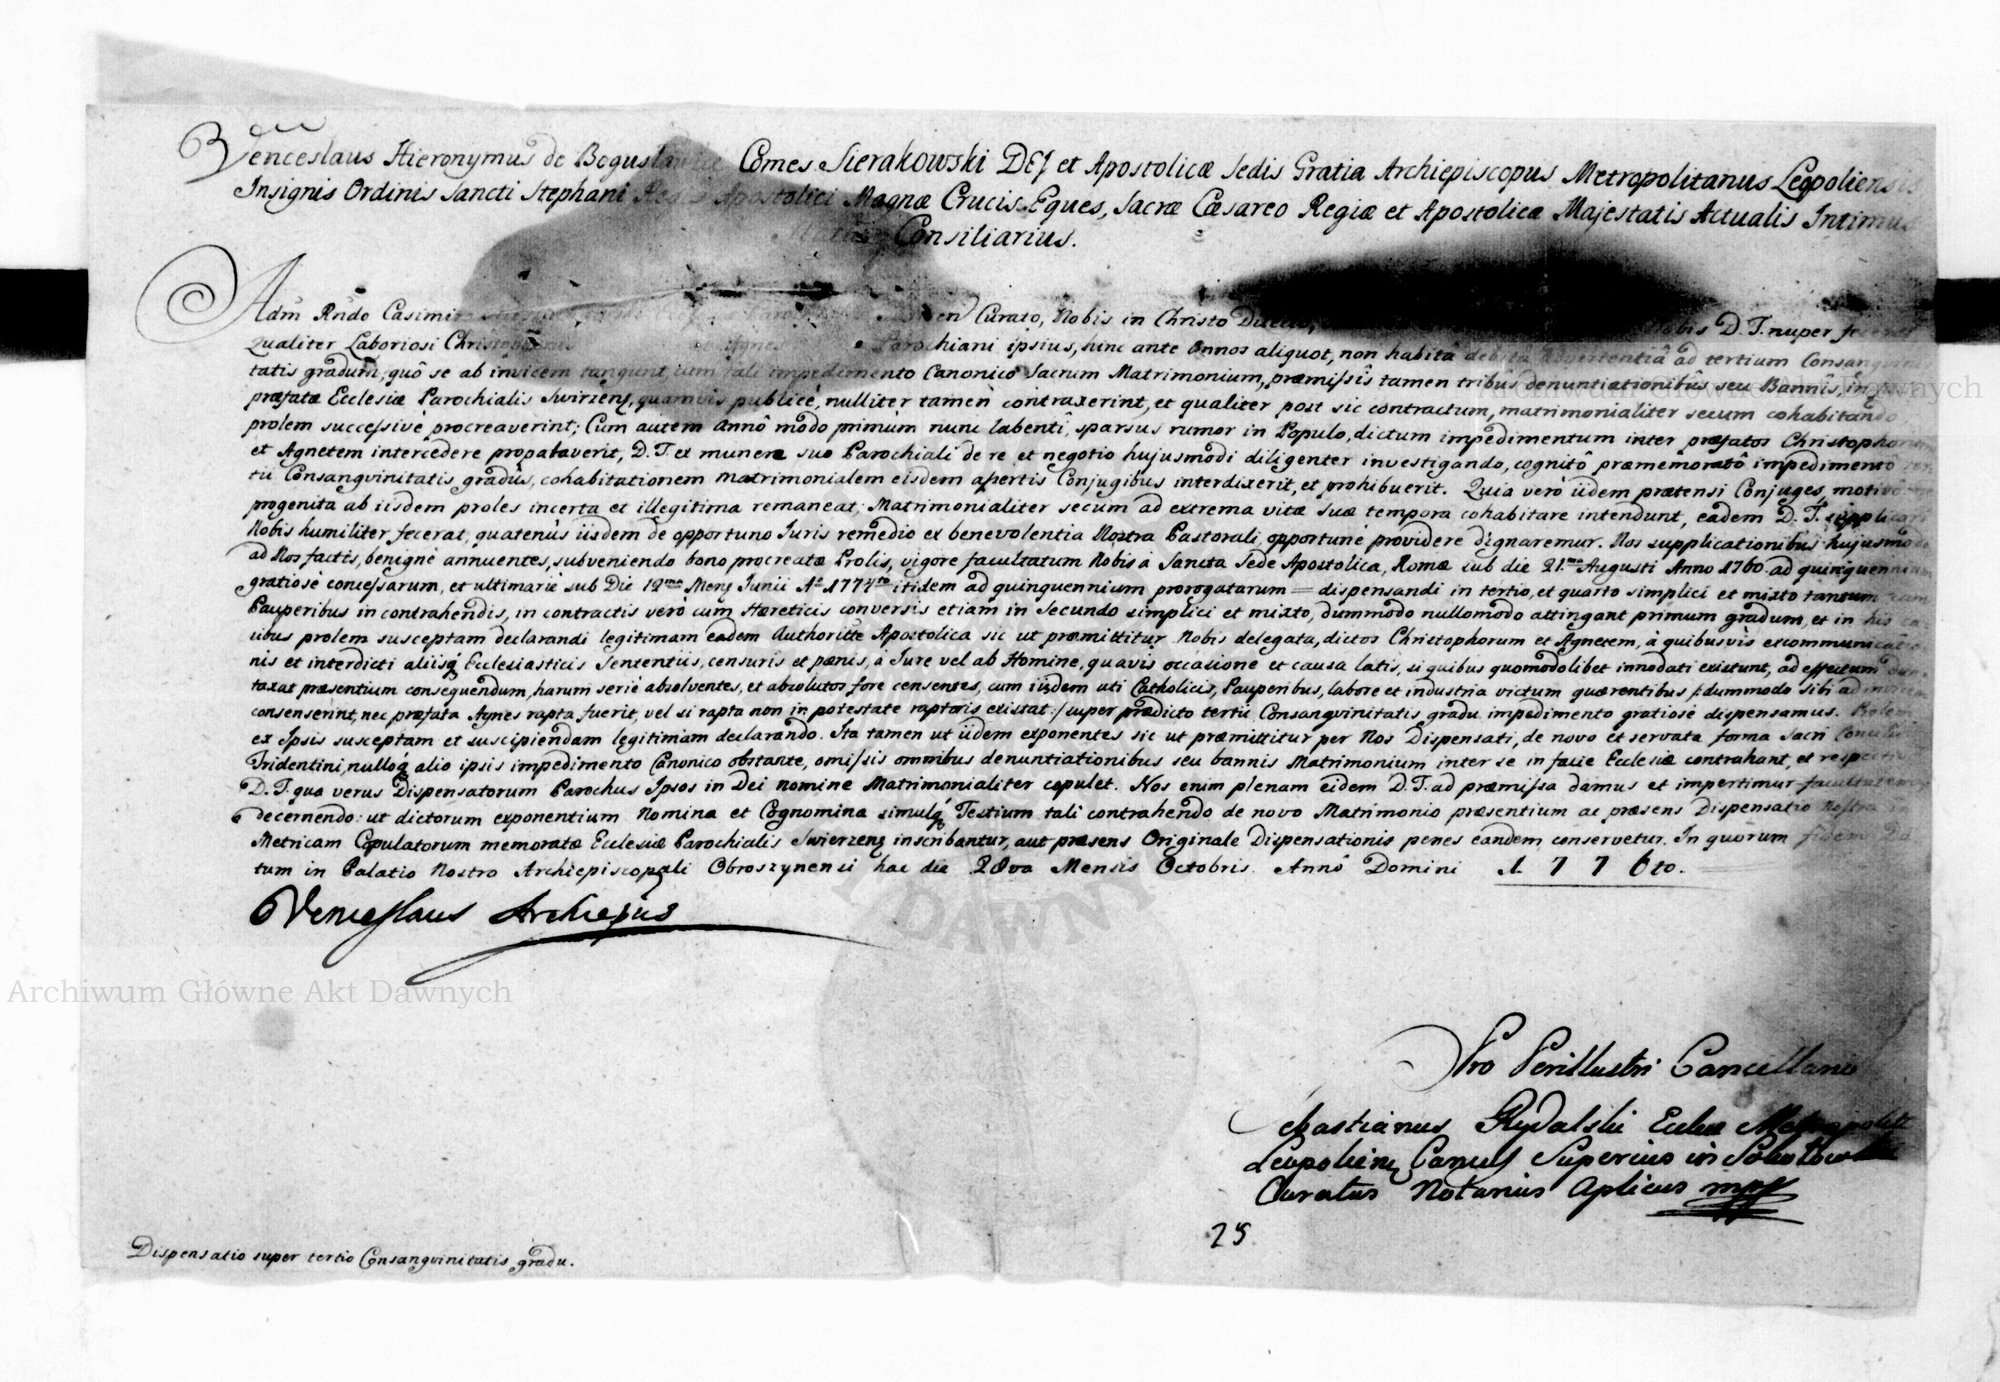 Venceslaus Hieronymus de Boguslavice Comes Sierakowski DEJ et Apostolicæ Sedis Gratia Archiepiscopus Metropolitanus Leopoliensis
Insignis Ordinis Sancti Stephani Regis Apostolici Magnæ Crucis Eques, Sacræ Cæsareo Regiæ et Apostolicæ Majestatis Actualis Intimus
Consiliarius.
Adm Rndo Casimi Curato, Nobis in Christo D. T. nuper
Qualiter Laboriosi Agnes Parochiani ipsius, hinc ante Annos aliquot, non habitâ debita advertentiâ ad tertium Consangvini
tatis gradum, quô se ab invicem tangunt cum tali impedimento Canonico Sacrum Matrimonium, præmissis tamen tribûs denuntiationibûs seu Bannîs, in
præfatæ Ecclesiæ Parochialis Swirzenz, quamvis publicè, nulliter tamen contraxerint, et qualiter post sic contractum, matrimonialiter secum cohabitando
prolem successivè procreaverint; Cum autem Annô modo primùm nunc labenti, sparsus rumor in Populo, dictum impedimentum inter præfatos Christophorum
et Agnetem intercedere propalaverit, D. T. ex munere suo Parochiali de re et negotio hujusmodi diligenter investigando, cognitô præmemoratô impedimentô ter
tii Consangvinitatis gradûs, cohabitationem matrimonialem eisdem assertis Conjugibus interdixerit, et prohibuerit. Quia verò iidem prætensi Conjuges, motivô ne
progenita ab iisdem proles incerta et illegitima remaneat, Matrimonialiter secum ad extrema vitæ suæ tempora cohabitare intendunt, eadem D. T. supplicari
Nobis humiliter fecerat, quatenùs iisdem de opportuno Juris remedio ex benevolentia Nostra Pastorali, opportunè providere dignaremur. Nos supplicationibus hujusmodi
ad Nos factis, benignè annuentes, subveniendo bono procreatæ Prolis, vigore facultatum Nobis à Sancta Sede Apostolica, Romæ sub die 21.ma Augusti Anno 1760 ad quinquennium
gratiosè concessarum, et ultimariè sub Die 12ma Mens Junii Ao 1774to itidem ad quinquennium prorogatarum = dispensandi in tertio, et quarto simplici et mixto tantum cum
Pauperibus in contrahendis, in contractis verò cum Hæreticis conversis etiam in Secundo simplici et mixto, dummodo nullomodo attingant primum gradum, et in his ca-
sibus prolem susceptam declarandi legitimam eadem Authoritte Apostolica sic ut præmittitur Nobis delegata, dictos Christophorum et Agnetem, à quibusvis excommunicatio
nis et interdicti aliisq Ecclesiasticis Sententiis, censuris et pænis, à Jure vel ab Homine, quavis occasione et causa latis, si quibus quomodolibet innodati existunt, ad effectum dun-
taxat præsentium consequendum, harum seriè absolventes, et absolutos fore censentes, cum iisdem uti Catholicis, Pauperibus, labore et industria victum quærentibus /: dummodo sibi ad invicem
consenserint, nec præfata Agnes rapta fuerit, vel si rapta non in potestate raptoris existat :/ super prædicto tertii Consangvinitatis gradu impedimento gratiosè dispensamus.
ex Ipsis susceptam et suscipiendam legitimam declarando. Ita tamen ut iidem exponentes sic ut præmittitur per Nos Dispensati, de novo et servata forma Sacri Concilii
Tridentini, nulloq alio ipsis impedimento Canonico obstante, omissis omnibus denuntiationibus seu bannis Matrimonium inter se in facie Ecclesiæ contrahant, et respectivè
D. T. qua verus Dispensatorum Parochus Ipsos in Dei nomine Matrimonialiter copulet. Nos enim plenam eidem D. T. ad præmissa damus et impertimur facultatem
decernendo: ut dictorum exponentium Nomina et Cognomina simulq Testium tali contrahendo de novo Matrimonio præsentium ac præsens Dispensatio Nostra in
Metricam Copulatorum memoratæ Ecclesiæ Parochialis Swierzenz inscribantur, aut præsens Originale Dispensationis penes eandem conservetur. In quorum fidem Da
tum in Palatio Nostro Archiepiscopali Obroszynensi hac die 28va Mensis Octobris Annô Domini 1776to.
Venceslaus Archiepus
Pro Perillustri Cancellario
Sebastianus Rydalski Eccliæ Metropolit
Leopoliens Canus Superius in
Curatus Notarius Aplicus mpp
25
Dispensatio super tertio Consangvinitatis gradu.
Archiwum Główne Akt Dawnych
Archiwum Główne Akt Dawnych
DAWNY